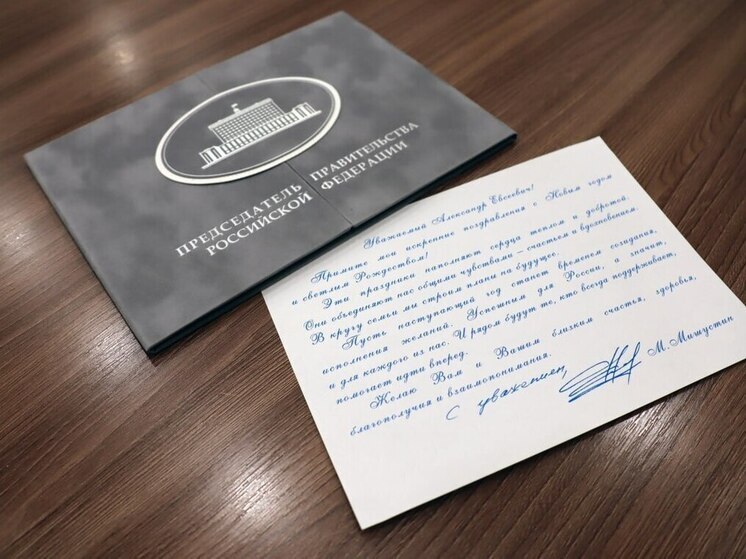 ПРЕДСЕДАТЕЛЬ ПРАВИТЕЛЬСТВА
РОССИЙСКОЙ ФЕДЕРАЦИИ
Уважаемый Александр Евсеевич!
Примите мои искренние поздравления с Новым годом
и светлым Рождеством!
Эти праздники наполняют сердца теплом и добротой.
Они объединяют нас общими чувствами – счастьем и вдохновением.
В кругу семьи мы строим планы на будущее.
Пусть наступающий год станет временем созидания,
исполнения желаний. Успешным для России, а значит,
и для каждого из нас. И рядом будут те, кто всегда поддерживает,
помогает идти вперед.
Желаю Вам и Вашим близким счастья, здоровья,
благополучия и взаимопонимания.
С уважением, М. Мишустин